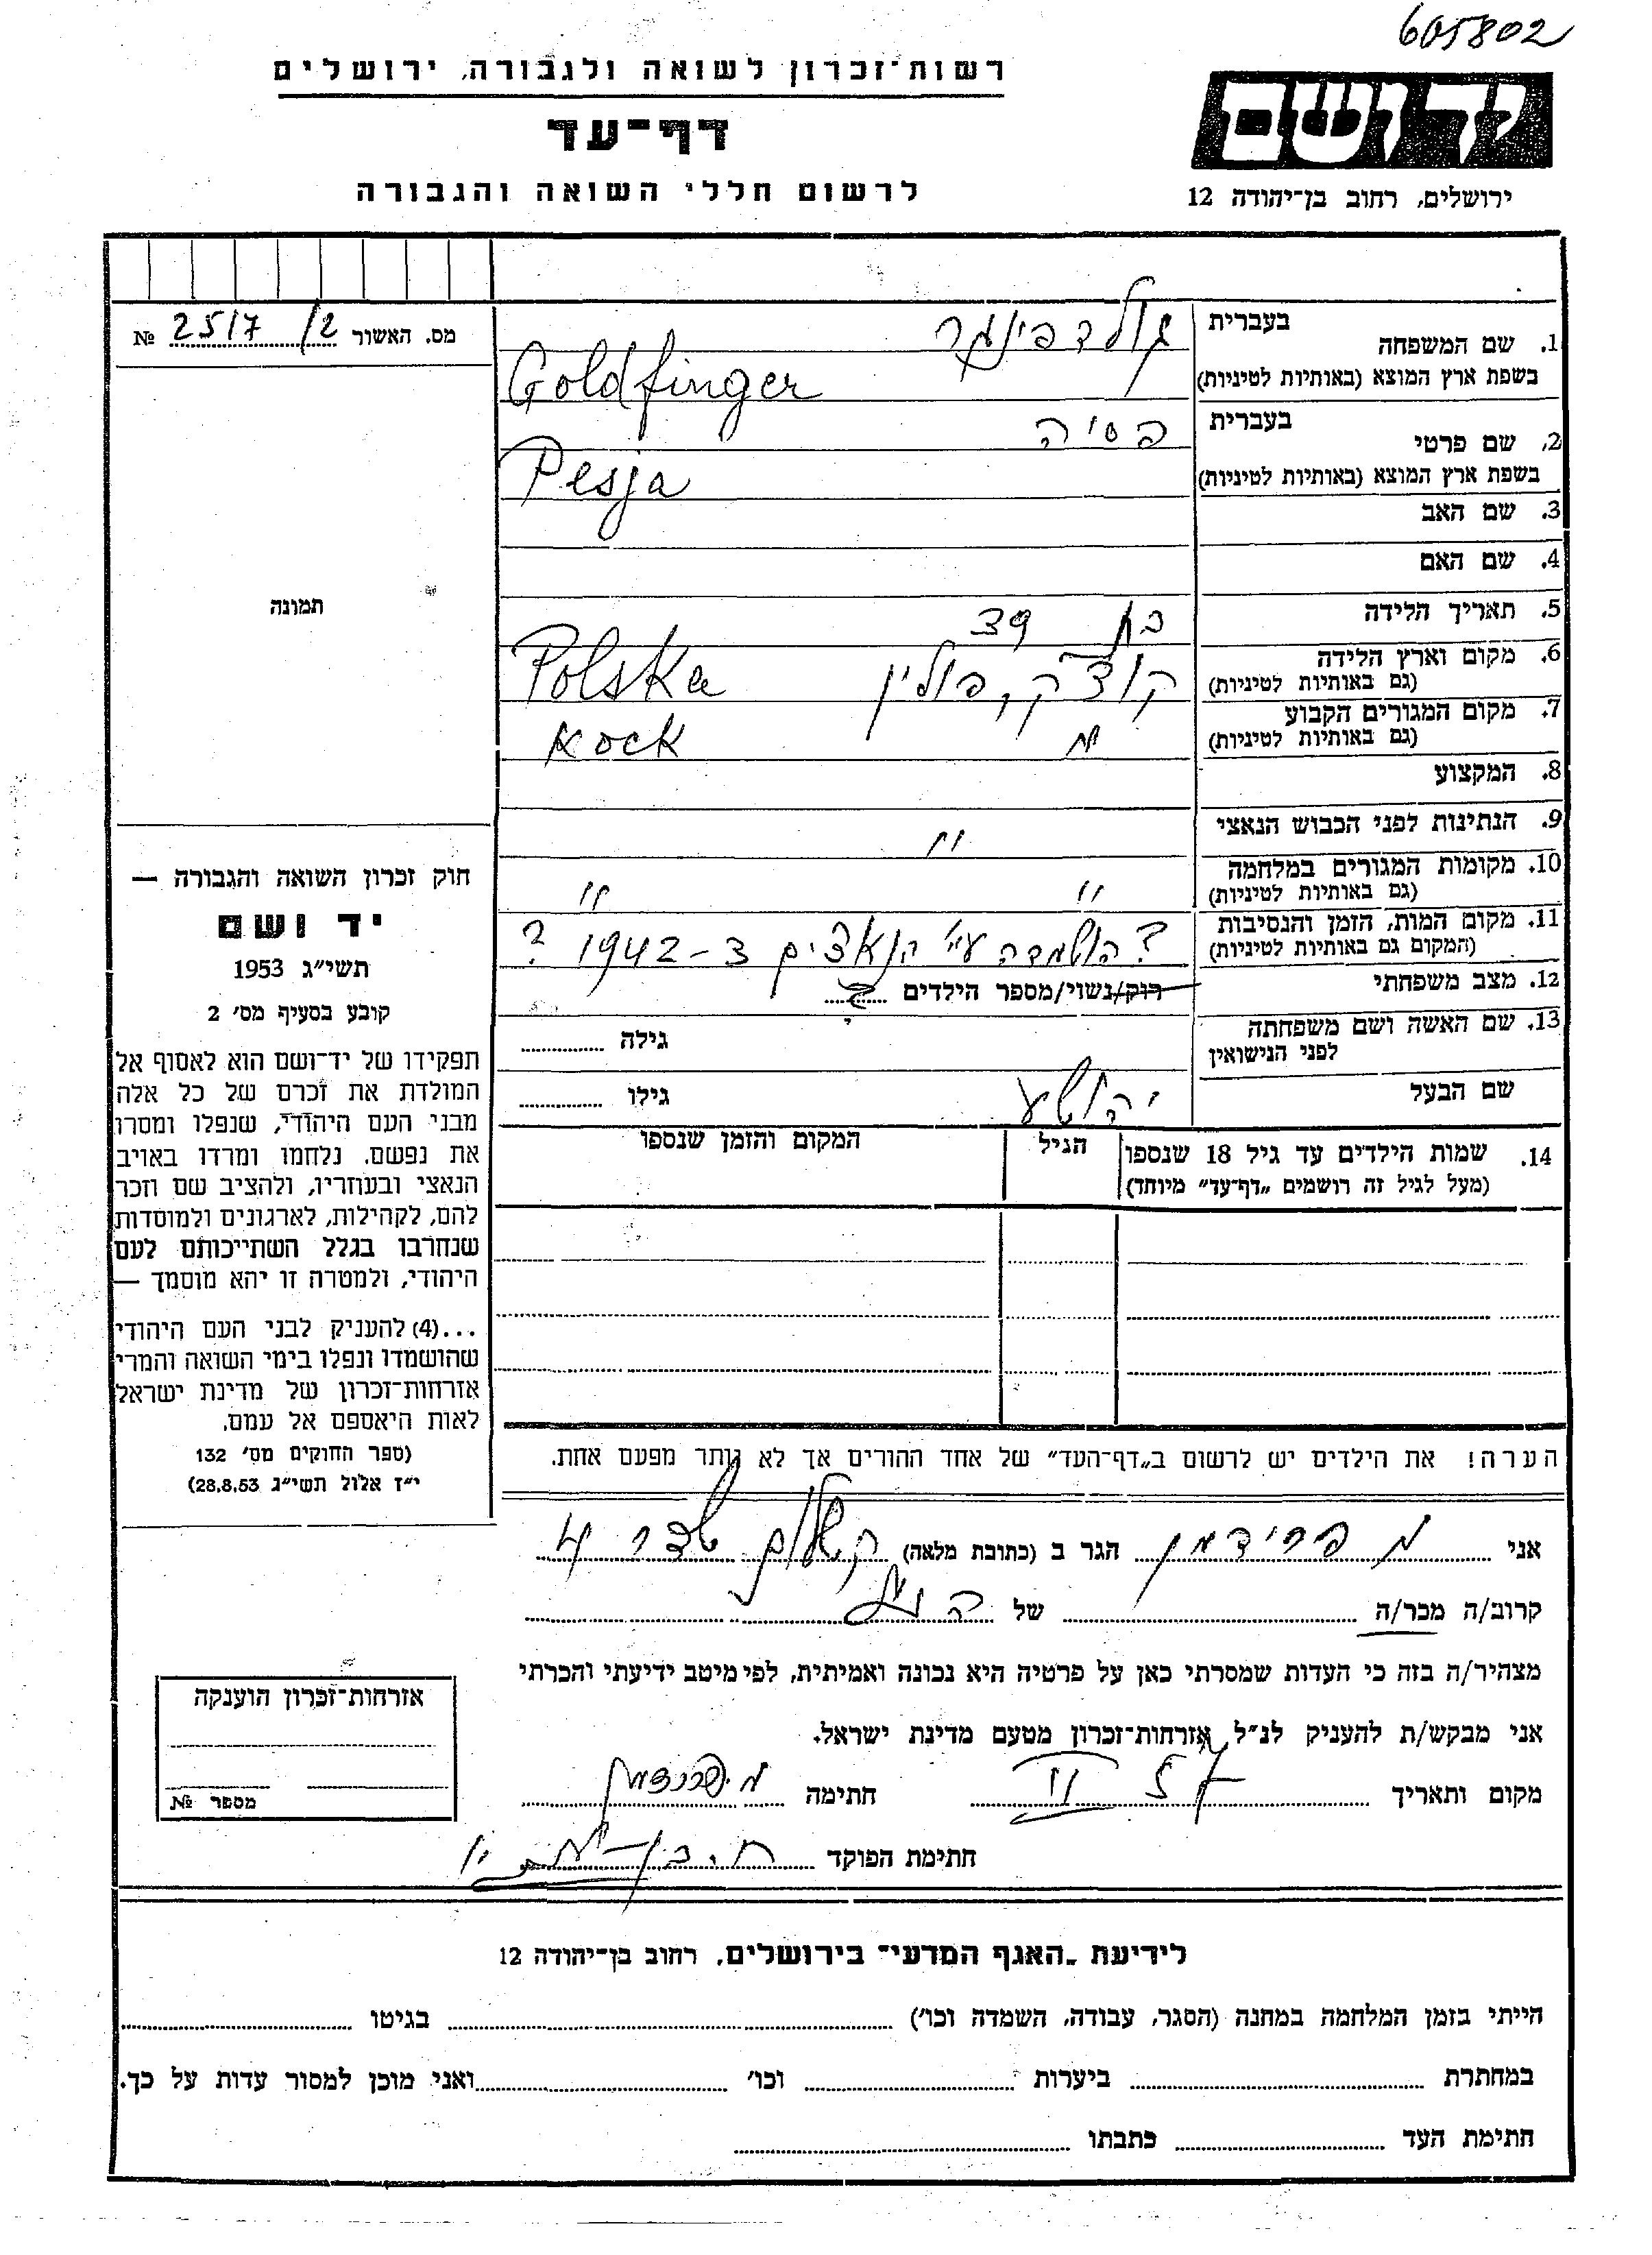 605802
רשות־זכרון לשואה ולגבורה, ירושלים
דף־עד
לרשום חללי השואה והגבורה
יד ושם
ירושלים, רחוב בן־יהודה 12
מס. האשור 2517/2 №
תמונה
חוק זכרון השואה והגבורה —
יד ושם
תשי״ג 1953
קובע בסעיף מס׳ 2
תפקידו של יד־ושם הוא לאסוף אל
המולדת את זכרם של כל אלה
מבני העם היהודי, שנפלו ומסרו
את נפשם, נלחמו ומרדו באויב
הנאצי ובעוזריו, ולהציב שם וזכר
להם, לקהילות, לארגונים ולמוסדות
שנחרבו בגלל השתייכותם לעם
היהודי, ולמטרה זו יהא מוסמך —
...(4) להעניק לבני העם היהודי
שהושמדו ונפלו בימי השואה והמרי
אזרחות־זכרון של מדינת ישראל
לאות היאספם אל עמם.
(ספר החוקים מס׳ 132
י״ז אלול תשי״ג 28.8.53)
1. שם המשפחה בעברית גולדפינגר
בשפת ארץ המוצא (באותיות לטיניות) Goldfinger
2. שם פרטי בעברית פסיה
בשפת ארץ המוצא (באותיות לטיניות) Pesja
3. שם האב
4. שם האם
5. תאריך הלידה בת 39
6. מקום וארץ הלידה (גם באותיות לטיניות) קוצק, פולין Polska
7. מקום המגורים הקבוע (גם באותיות לטיניות) Kock
8. המקצוע
9. הנתינות לפני הכבוש הנאצי "
10. מקומות המגורים במלחמה (גם באותיות לטיניות) " "
11. מקום המות, הזמן והנסיבות (המקום גם באותיות לטיניות) ? הושמדה ע״י הנאצים ב–1942 ?
12. מצב משפחתי רווק/נשוי/מספר הילדים
13. שם האשה ושם משפחתה לפני הנישואין גילה
שם הבעל יהושע גילו
14. שמות הילדים עד גיל 18 שנספו הגיל המקום והזמן שנספו
(מעל לגיל זה רושמים „דף־עד״ מיוחד)
הערה! את הילדים יש לרשום ב„דף־העד״ של אחד ההורים אך לא יותר מפעם אחת.
אני מ פרידמן הגר ב (כתובת מלאה)
קרוב/ה מכר/ה של הנ״ל
מצהיר/ה בזה כי העדות שמסרתי כאן על פרטיה היא נכונה ואמיתית, לפי מיטב ידיעתי והכרתי
אני מבקש/ת להעניק לנ״ל אזרחות־זכרון מטעם מדינת ישראל.
מקום ותאריך II 57 חתימה מ. פרידמן
חתימת הפוקד
אזרחות־זכרון הוענקה
מספר №
לידיעת „האגף המדעי״ בירושלים, רחוב בן־יהודה 12
הייתי בזמן המלחמה במחנה (הסגר, עבודה, השמדה וכו׳) בגיטו
במחתרת ביערות וכו׳ ואני מוכן למסור עדות על כך.
חתימת העד כתבתו